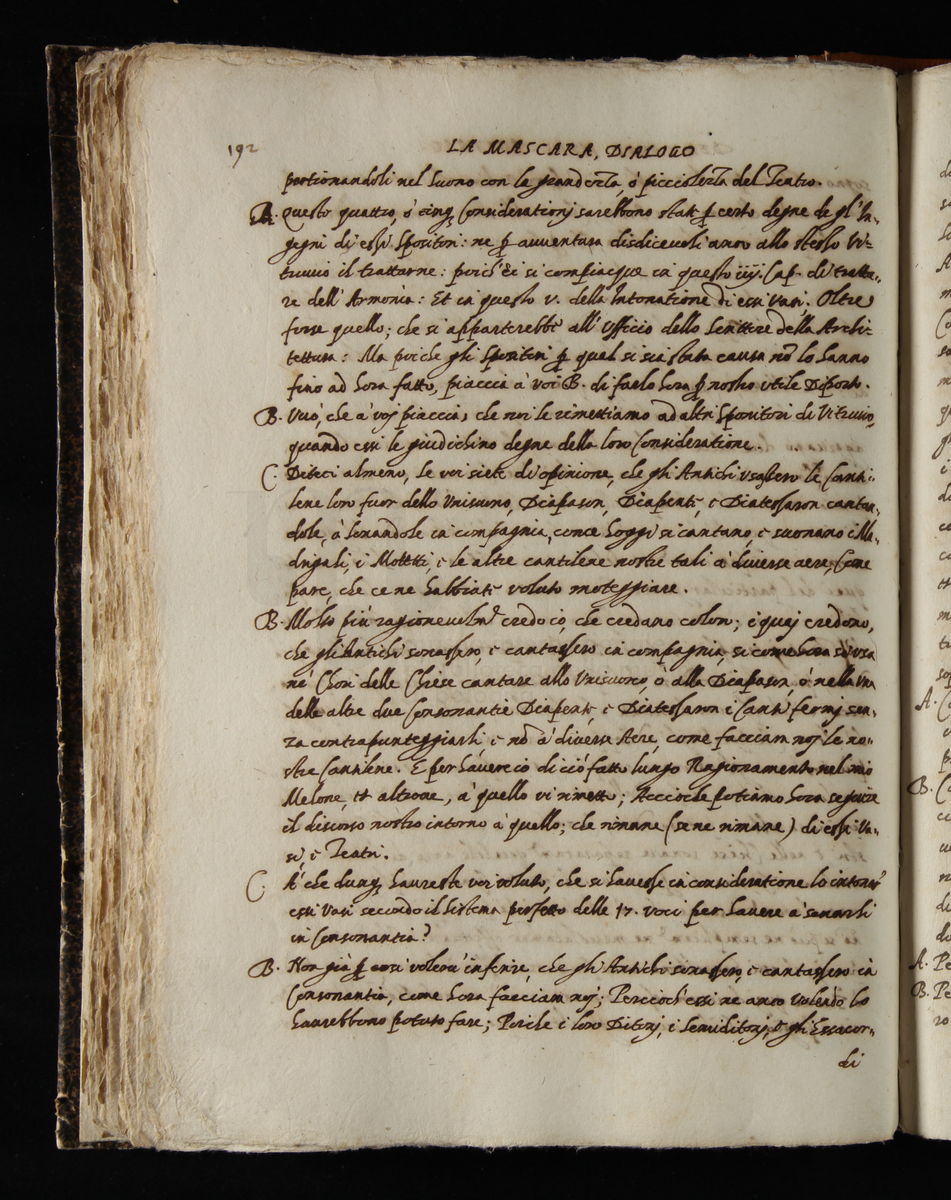 192
LA MASCARA, DIALOGO
portionandoli nel suono con la grandezza, ò picciolezza del Teatro.
A. Queste quattro, ò cinq; Considerationj sarebbono state p certo degne de gl'In-
gegni di essi Spositori: ne p avventura disdicevoli anco allo stesso Vi-
truvio il trattarne: poich'Ei si compiacque in questo iiij. Cap. di tratta-
re dell'Armonia: Et in questo v. della Intonatione di essi Vasi. Oltre
forse quello; che si apparterebbe all'Ufficio dello Scrittore della Archi-
tettura: Ma poiche gli Spositori p qual si sia stata causa nõ lo hanno
fino ad hora fatto, piaccia à voi B. di farlo hora p nostro utile Diporto.
B. Vuo, che à voj piaccia, che noi le rimettiamo ad altri Spositori di Vitruvio,
quando essi le giudichino degne della loro Consideratione.
C. Diteci almeno, se voi siete di opinione, che gli Antichi usassero le Canti-
lene loro fuor dello Unisuono, Diapason, Diapente, e Diatessaron cantan-
dole, ò sonandole in compagnia, come hoggi si cantano, e suonano i Ma-
drigali, i Motetti, e le altre cantilene nostre tali à diverse aere, Come
pare, che ce ne habbiate voluto motteggiare.
B. Molto più ragionevolmẽ credo io, che credano coloro; i quaj credono,
che gli Antichi sonassero, e cantassero in compagnia, si come hora si usa
ne' Chori delle Chiese cantare allo Unisuono, ò alla Diapason, ò nella una
delle altre due Consonantie Diapente, e Diatessaron i Canti fermj sen-
za contrapunteggiarli, e nõ à diverse Aere, come facciam noj le no-
stre Cantilene. E per havere io di ciò fatto lungo Ragionamento nel mio
Melone, et altrove, à quello vi rimetto; Accioche potiamo hora seguire
il discorso nostro intorno à quello; che rimane (se ne rimane) di essi Va-
si, e Teatri.
C. A' che dunq; havreste voi voluto, che si havesse in consideratione lo intonar
essi Vasi secondo il Sistema perfetto delle 17. voci per havere à sonarli
in Consonantia?
B. Non già p cosi volere inferire, che gli Antichi sonassero, e cantassero in
Consonantia, come hora facciam noj; Percioch'essi ne anco volendo lo
haurebbono potuto fare; Perche i loro Ditonj, i Semiditonj, e gli Essacor-
di